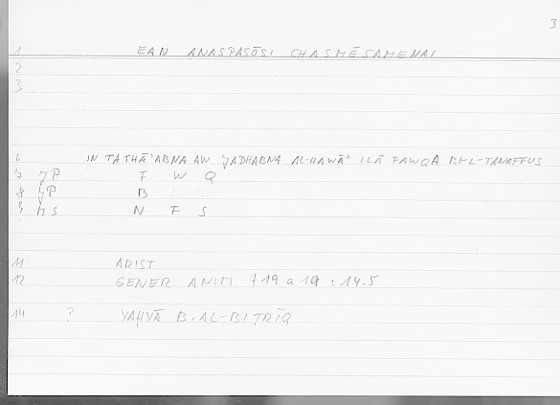 3
1 EAN ANASPASŌSI CHASMĒSAMENAI
2
3
6 IN TATHĀ'ABNA AW JADHABNA AL-HAWĀ' ILĀ FAWQA BI-L-TANAFFUS
7 JP F W Q
8 JP B
9 MS N F S
11 ARIST
12 GENER ANIM 719 a 19 : 14.5
14 ? YAḤYĀ B. AL-BIṬRĪQ